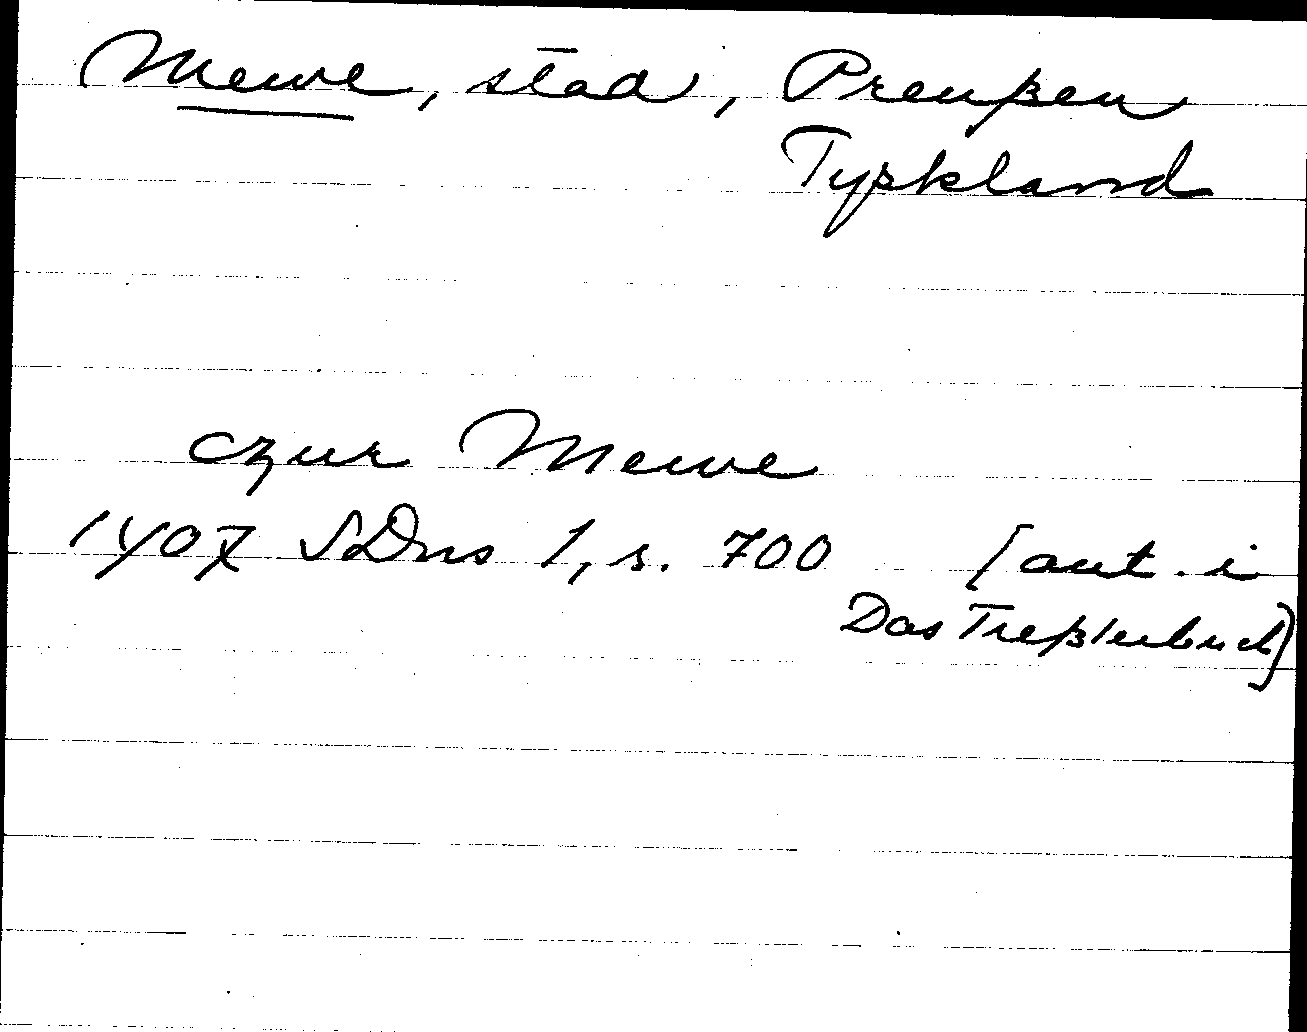 Mewe, stad, Preußen
Tyskland
czur Mewe
1407 SDns 1, s. 700 [ant. i
Das Treßlerbuch]